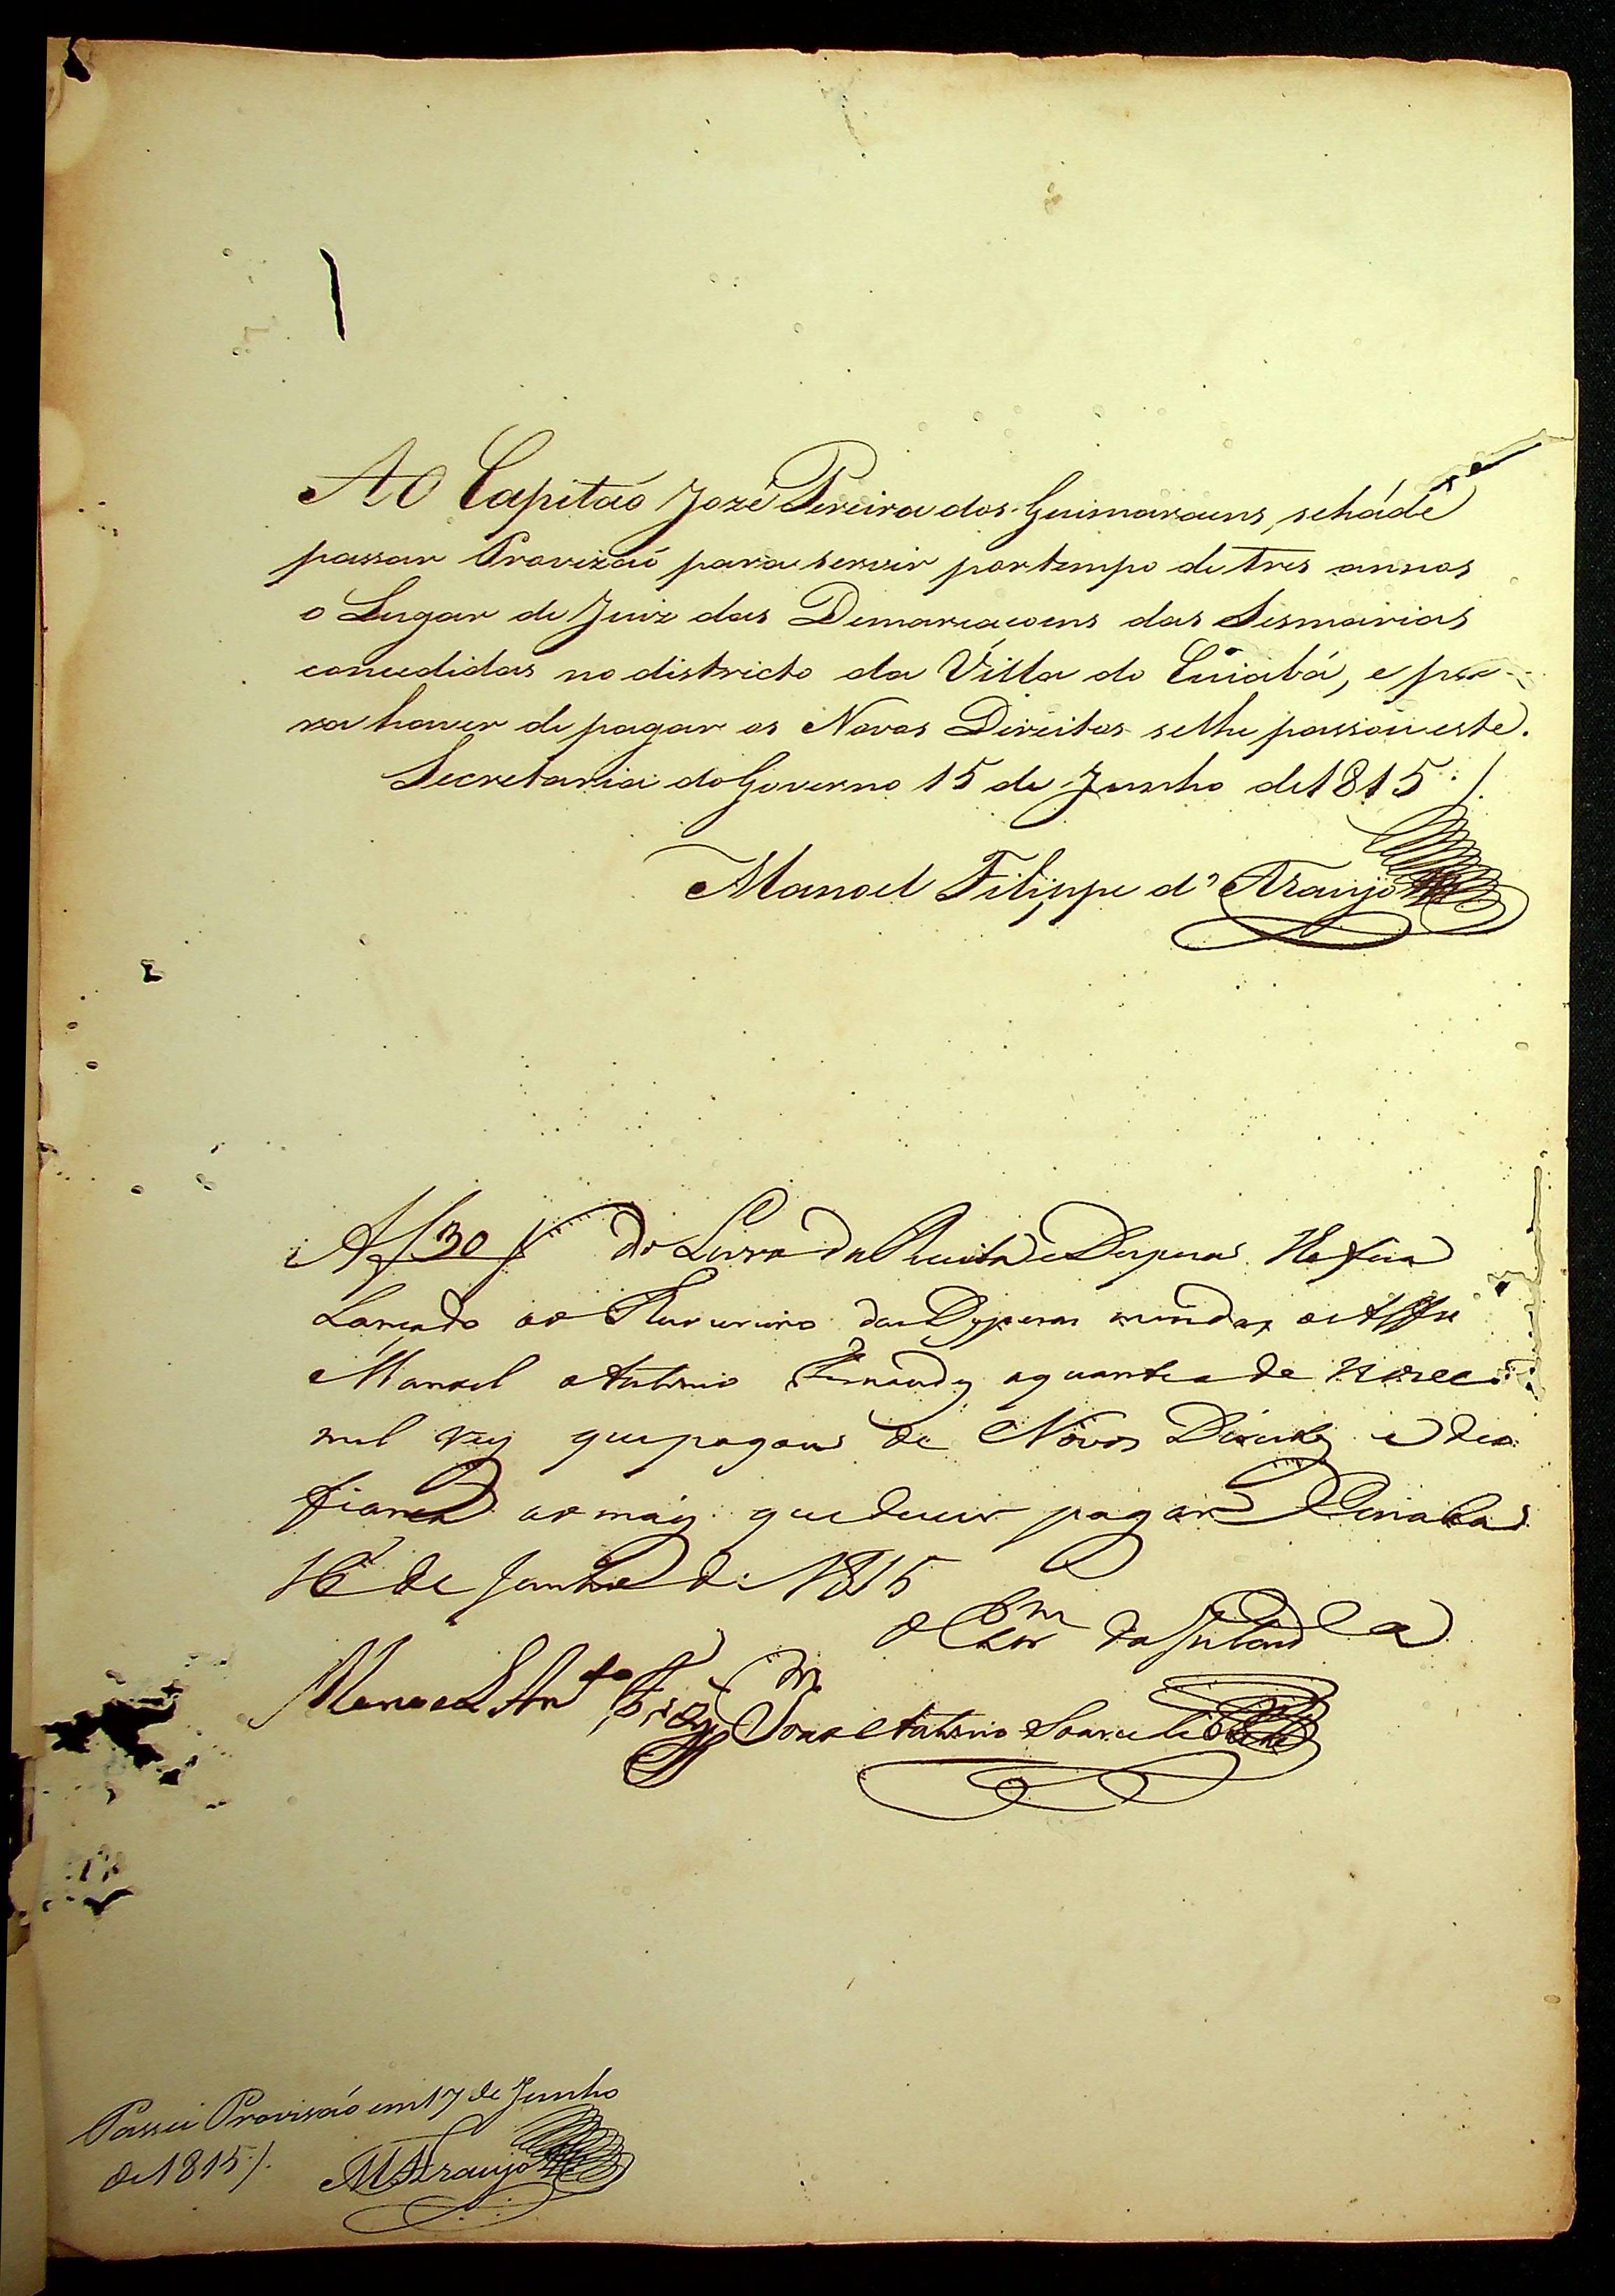 Ao Capitaó Jozé Pereira dos Guimaraens, se há de
passar Provizaó para servir por tempo de tres annos
o Lugar de Juiz das Demarcacoens das Sesmarias
concedidas no districto da Villa do Cuiabá, e pa-
ra haver de pagar os Novos Direitos se lhe passou este.
Secretaria do Governo 15 de Junho de 1815 ./.
Manoel Filippe d' Araujo
A f 30 do Livro da Receita e Despeza fica
Lançado ao Thezoureiro das Despezas miudas o Alfes
Manoel Antonio Fernandes a quantia de
mil reis que pagou de Novos Direitos e deo
fiança ao mais que dever pagar Cuiabá
16 de Junho de 1815
O da
Manoel Anto Frz
Antonio Soares
Passei Provisaó em 17 de Junho
de 1815 ./. MFAraujo